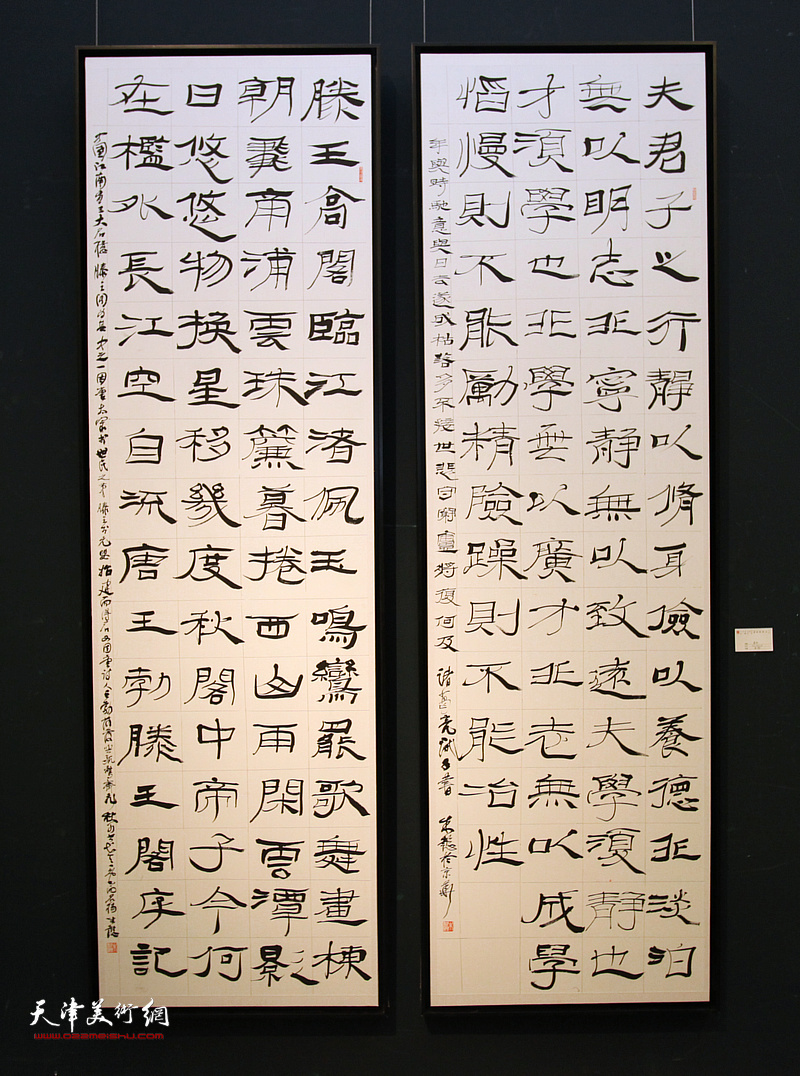 夫君子之行靜以脩身儉以養德非淡泊
無以明志非寧靜無以致遠夫學須靜也
才須學也非學無以廣才非志無以成學
慆慢則不能勵精險躁則不能冶性
年與時馳意與日去遂成枯落多不接世悲守窮廬將復何及 諸葛亮誡子書
滕王高閣臨江渚佩玉鳴鸞罷歌舞畫棟
朝飛南浦雲珠簾暮捲西山雨閑雲潭影
日悠悠物換星移幾度秋閣中帝子今何
在檻外長江空自流唐王勃滕王閣序記
天津美術網
www.022meishu.com